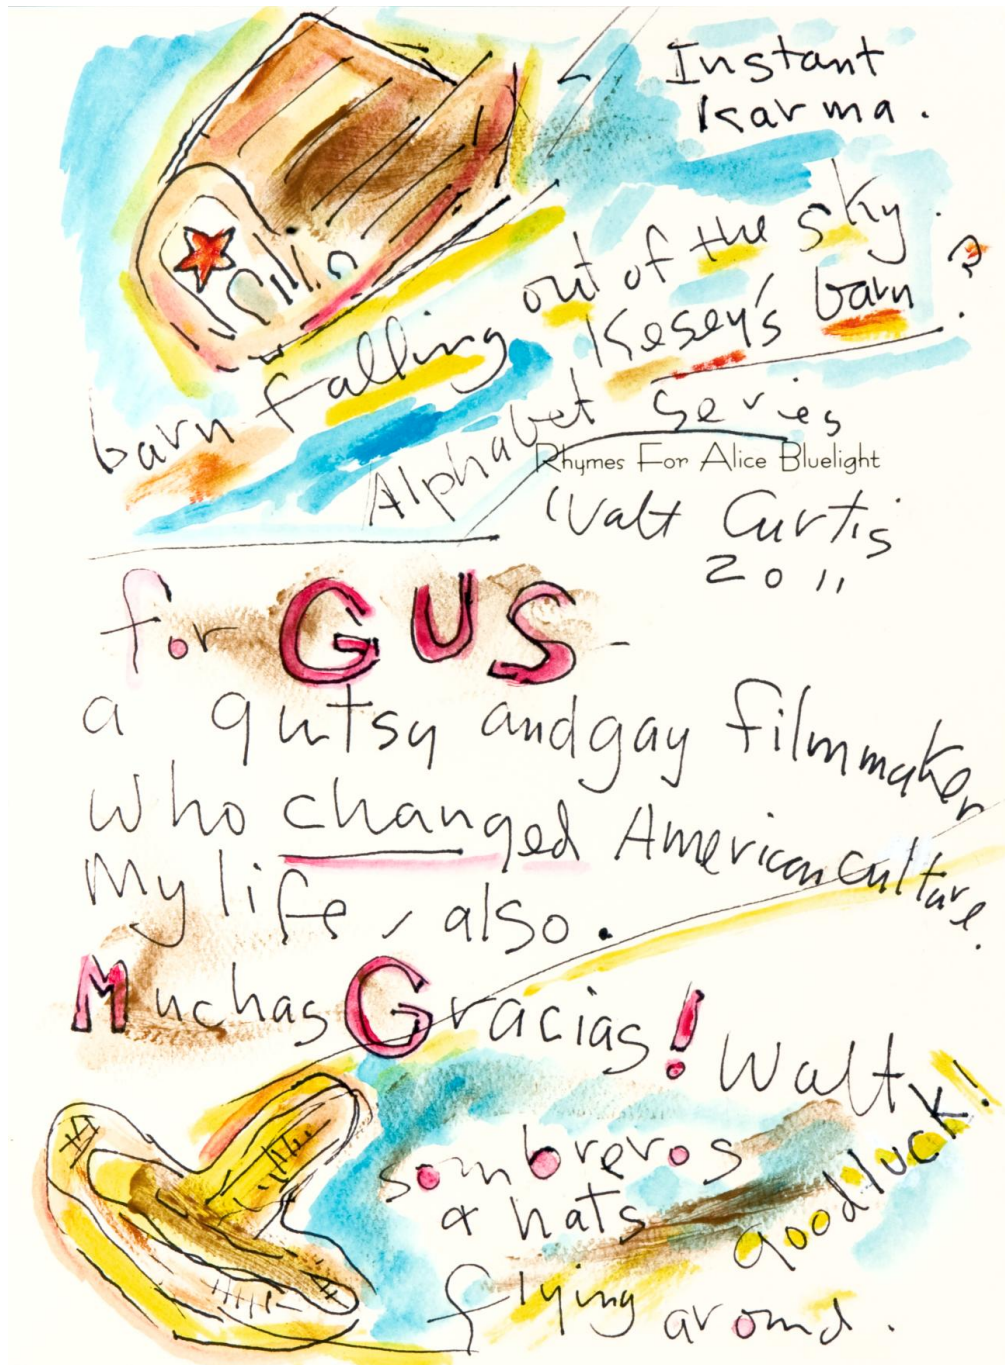 Instant
Karma.
barn falling out of the sky.
Kesey's barn?
Alphabet Series
Rhymes For Alice Bluelight
Walt Curtis
2011
for GUS-
a gutsy and gay filmmaker
who changed American culture.
My life, also.
Muchas Gracias! Walt
sombreros
& hats
flying around.
good luck!